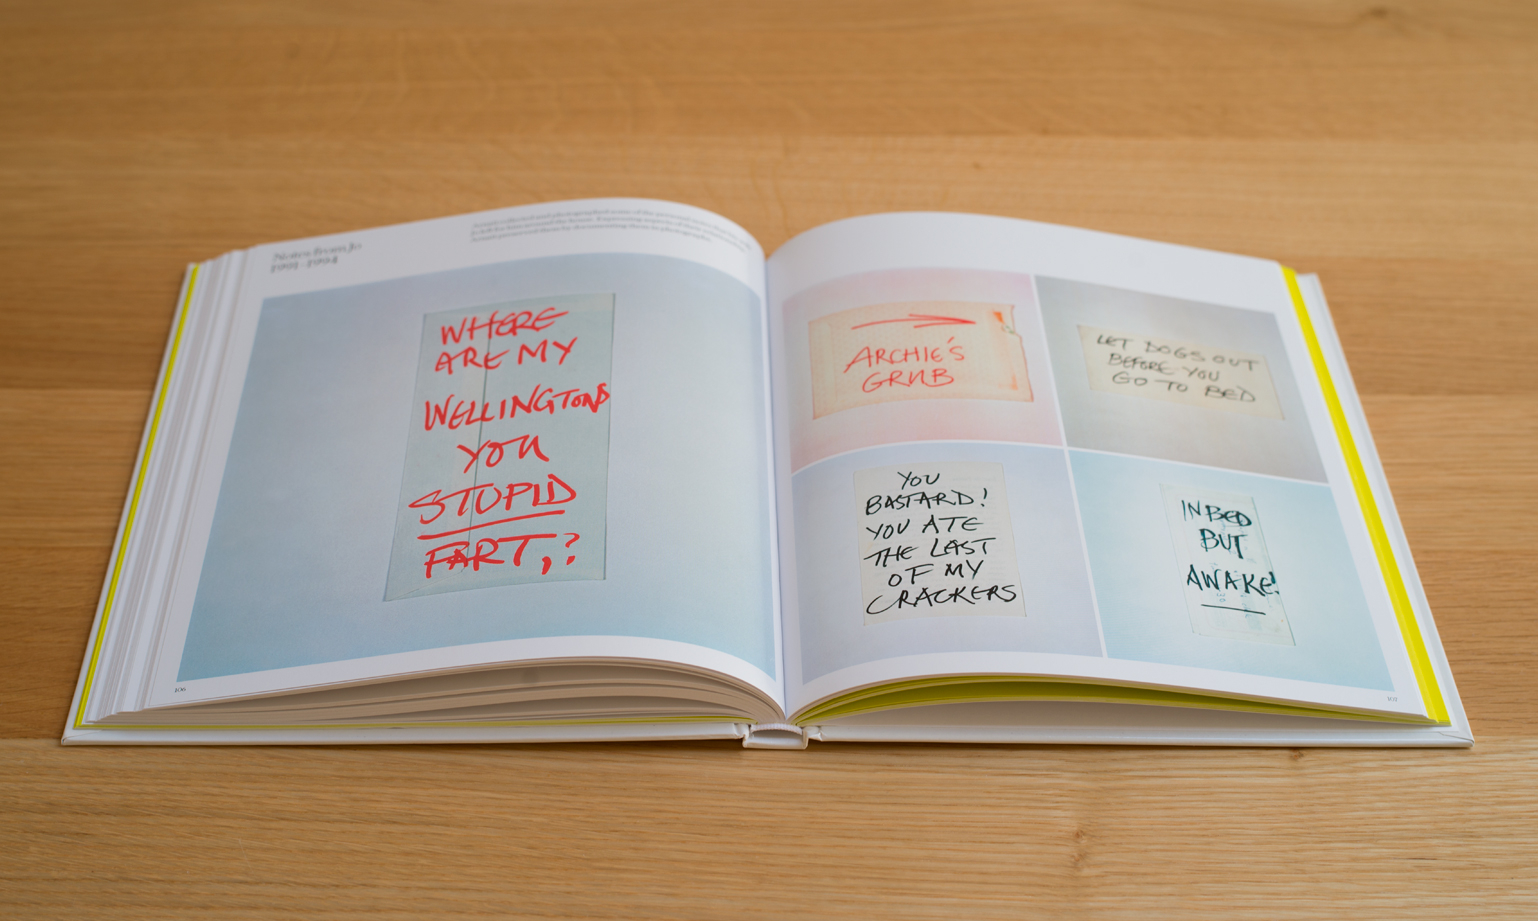 Notes from Jo
1991 - 1994
WHERE
ARE MY
WELLINGTONS
YOU
STUPID
FART,?
106
ARCHIE'S
GRUB
LET DOGS OUT
BEFORE YOU
GO TO BED
YOU
BASTARD!
YOU ATE
THE LAST
OF MY
CRACKERS
IN BED
BUT
AWAKE!
107